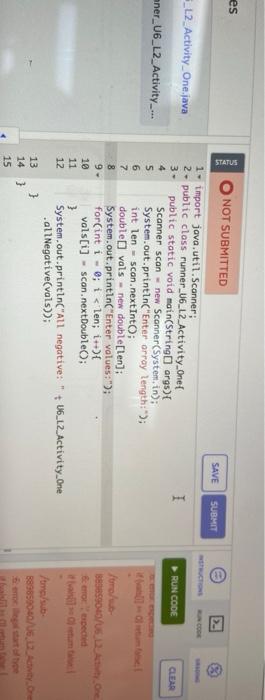 es
_L2_Activity_One.java
ner_U6_L2_Activity_...
STATUS
NOT SUBMITTED
SAVE
SUBMIT
INSTRUCTIONS
RUN CODE
GRADING
1 import java.util.Scanner;
2 public class runner_U6_L2_Activity_One{
3 public static void main(String[] args){
4 Scanner scan = new Scanner(System.in);
5 System.out.println("Enter array length:");
6 int len = scan.nextInt();
7 double[] vals = new double[len];
8 System.out.println("Enter values:");
9 for(int i = 0; i < len; i++){
10 vals[i] = scan.nextDouble();
11 }
12 System.out.println("All negative: " + U6_L2_Activity_One
.allNegative(vals));
13 }
14 }
15
RUN CODE
CLEAR
/tmp/sub-
889859040/U6_L2_Activity_One
6: error:
expected
/tmp/sub-
889859040/U6_L2_Activity_One
6: error: illegal start of type